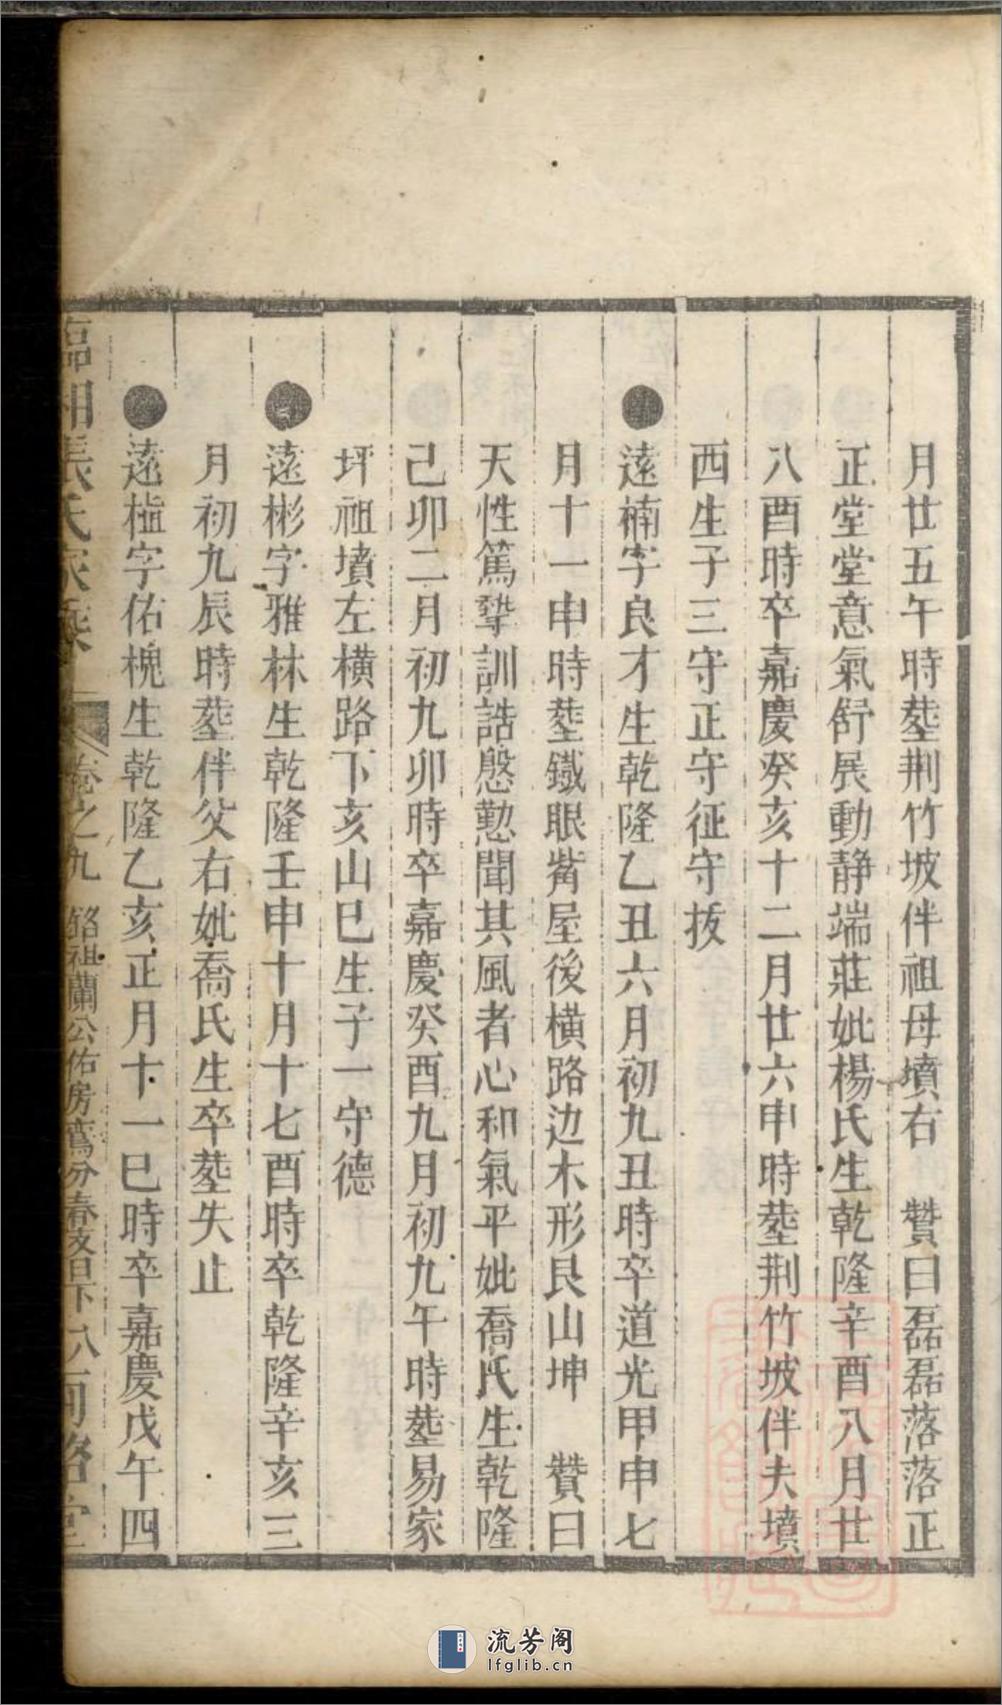 月廿五午時塟荆竹坡伴祖母墳右　贊曰磊磊落落正
正堂堂意氣舒展動静端莊妣楊氏生乾隆辛酉八月廿
八酉時卒嘉慶癸亥十二月廿六申時塟荆竹坡伴夫墳
西生子三守正守征守拔
遠楠字良才生乾隆乙丑六月初九丑時卒道光甲申七
月十一申時塟鐵眼觜屋後横路边木形艮山坤　贊曰
天性篤摯訓誥慇懃聞其風者心和氣平妣喬氏生乾隆
己卯二月初九卯時卒嘉慶癸酉九月初九午時塟易家
坪祖墳左横路下亥山巳生子一守德
遠彬字雅林生乾隆壬申十月十七酉時卒乾隆辛亥三
月初九辰時塟伴父右妣喬氏生卒塟失止
遠植字佑槐生乾隆乙亥正月十一巳時卒嘉慶戊午四
臨湘張氏家乘 卷之九 銘祖蘭公佑房 分春 下 八
流芳阁
lfglib.cn